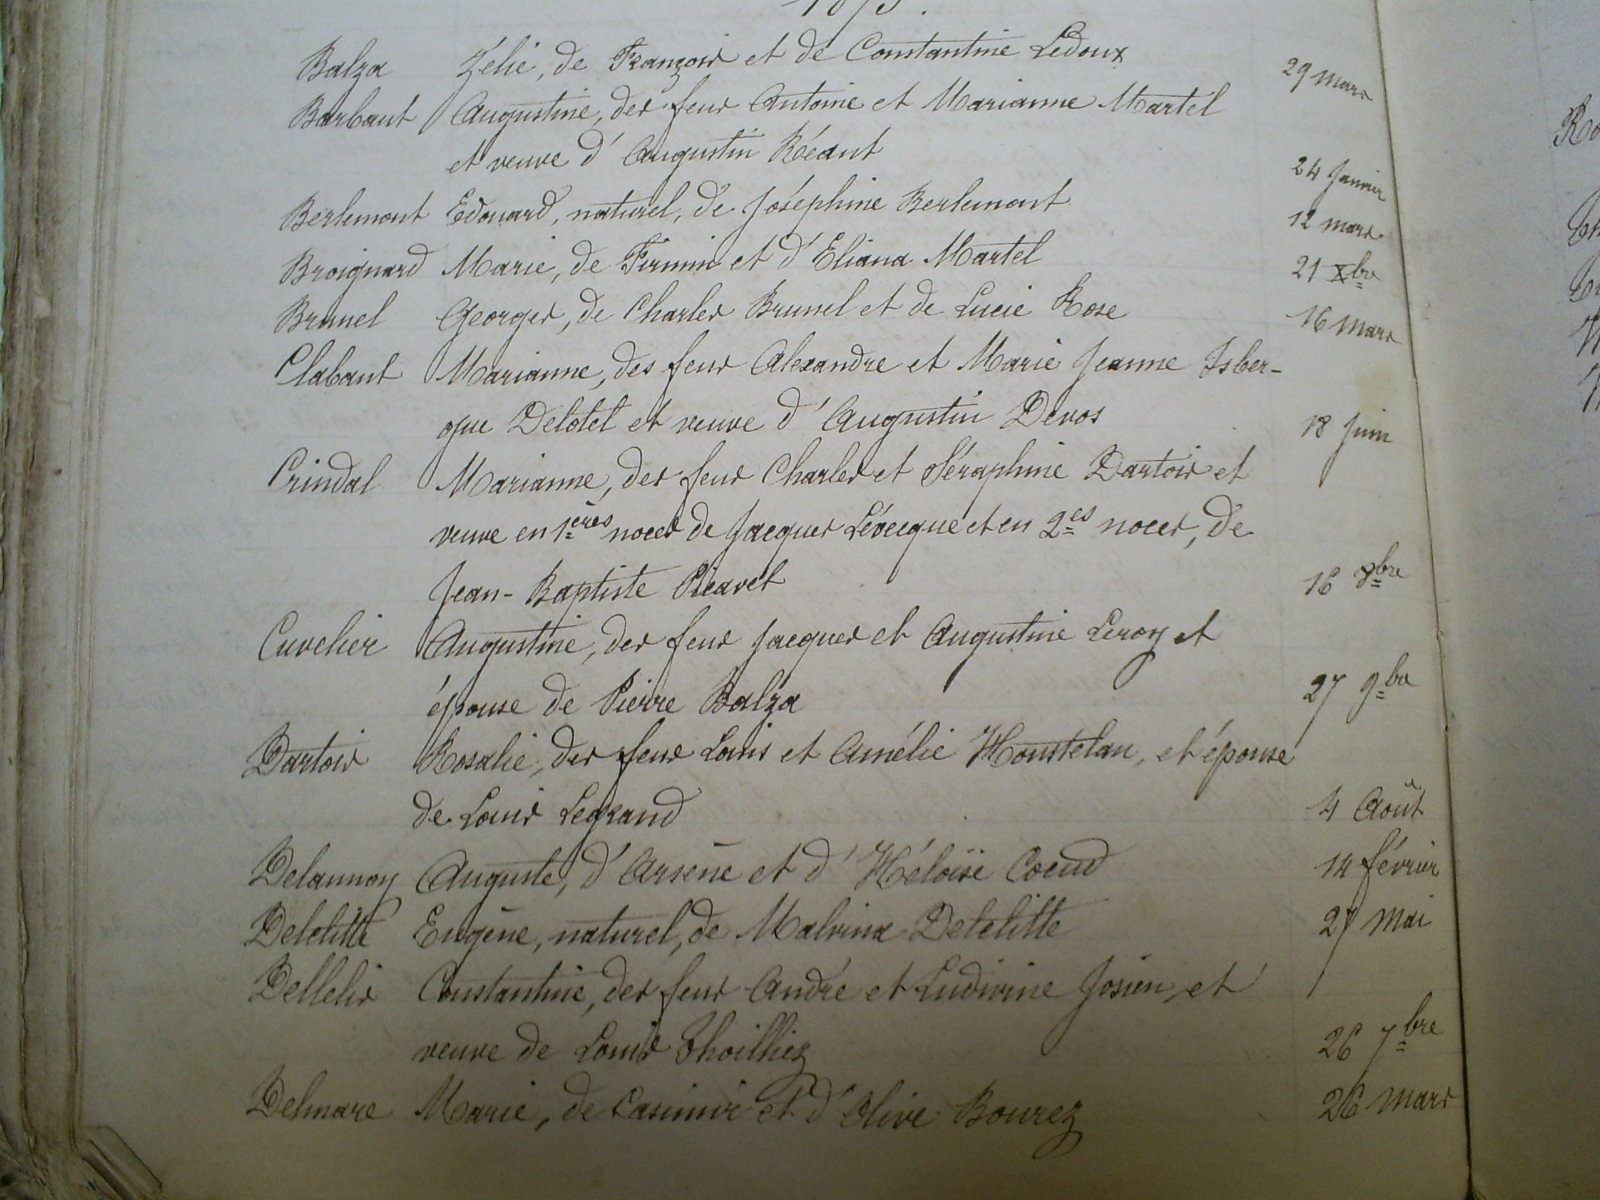 Balza Zélie, de François et de Constantine Ledoux 29 mars
Barbaut Augustine, des feus Antoine et Marianne Martel
et veuve d'Augustin Réant 24 Janvier
Berlemont Edouard, naturel, de Joséphine Berlemont 12 mars
Broignard Marie, de Firmin et d'Eliana Martel 21 Xbre
Brunel Georges, de Charles Brunel et de Lucie Rose 16 mars
Clabaut Marianne, des feus Alexandre et Marie Jeanne Isber-
que Delotel et veuve d'Augustin Devos 18 Juin
Crindal Marianne, des feus Charles et Séraphine Dartois et
veuve en 1ères noces de Jacques Lévecque et en 2es noces, de
Jean-Baptiste Piéavet 16 8bre
Cuvelier Augustine, des feus Jacques et Augustine Leroy et
épouse de Pierre Balza 27 9bre
Dartois Rosalie, des feus Louis et Amélie Houstelan, et épouse
de Louis Legrand 4 Août
Delannoy Auguste, d'Arsène et d'Héloïse Coeud 14 février
Delelitte Eugène, naturel, de Malvina Delelitte 27 Mai
Dellelis Constantine, des feus André et Ludivine Josien, et
veuve de Louis Thoilliez 26 7bre
Delmare Marie, de Casimir et d'Olive Bourez 26 Mars